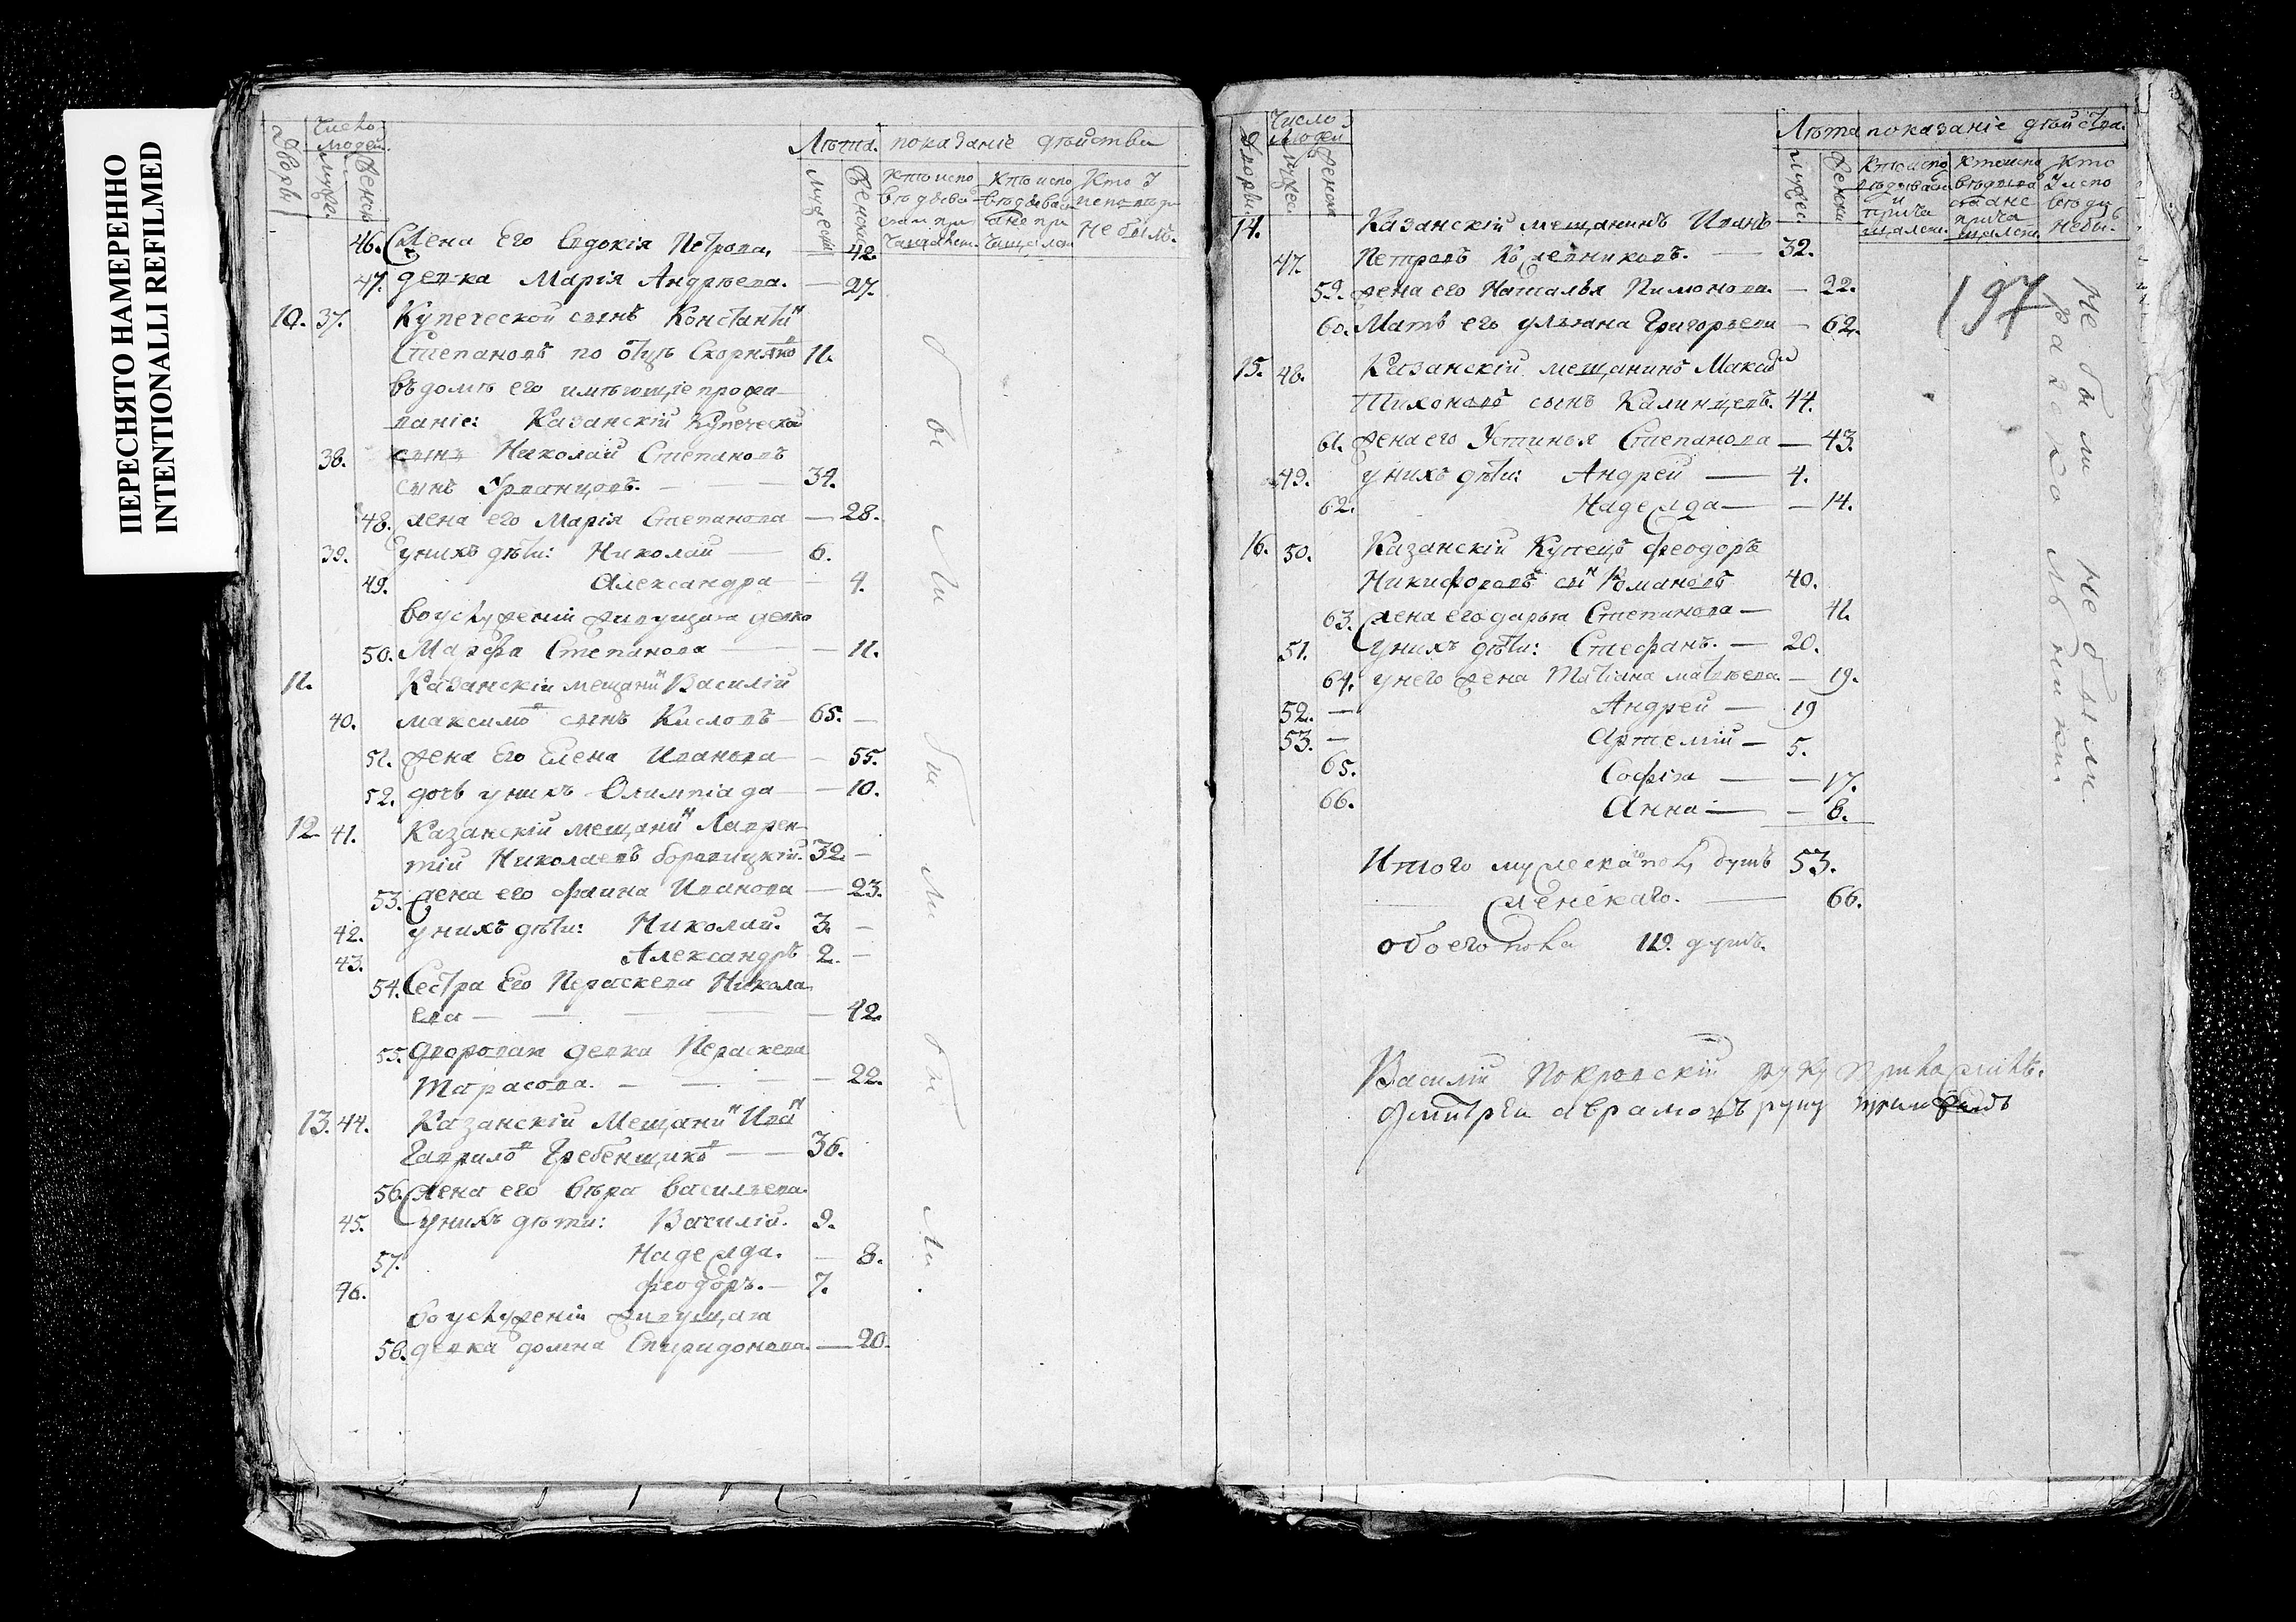 ПЕРЕСНЯТО НАМЕРЕННО
INTENTIONALLI REFILMED
Дворы
Число людей
Мужес.
Женск.
Лѣта
показаніе дѣйства
Мужеск
Женски
Кто испо
вѣдыва
Кто испо
вѣдывал
Кто у
исповѣди
не былъ.
46. Жена Его Евдокія Петрова, — 42.
47. девка Марія Андрѣева. — 27.
10. 37. Купеческой сынъ Константи н
Степановъ по отцѣ Скорняко в 11.
въ домѣ его имѣющіе пропи
таніе: Казанскій Купеческой
38. сынъ Николай Степановъ
сынъ 34.
48. жена его Марія Степанова — 28.
39. у нихъ дѣти: Николай — 6.
49. Александра — 4.
во услуженіи живущая девка
50. Марфа Степанова — 11.
11. Казанскій мещани н Василій
40. Максимо в сынъ Кисловъ — 65. —
51. жена Его Елена Иванова — 55.
52. дочь у нихъ Олимпіада — 10.
12 41. Казанскій мещани н Лаврен
тій Николаевъ Боровицкій. 32. —
53. жена его Фаина Иванова — 23.
42. у нихъ дѣти: Николай. 3. —
43. Александръ 2. —
54. Сестра Его Параскева Никола
ева — 42.
55. дворовая девка Параскева
Тарасова. — 22.
13. 44. Казанскій Мещани н Ива н
Гаврило в Гребенщико в — 36.
56. жена его Вѣра Васильева.
45. у нихъ дѣти: Василій. 9.
57. Надежда. — 8.
46. Феодоръ. — 7.
во услуженіи живущая
58. девка домна Спиридонова. — 20.
Не были
Дворы.
Число людей
Мужес.
Женск
Лѣта
показаніе дѣйства.
Мужес.
Женски
Кто испо
вѣдывал
и
прича
щался.
Кто испо
вѣдыва
прича
щался.
Кто
У испо
вѣди
не бы.
14. Казанскій мещанинъ Иванъ
47. Петровъ Кожевниковъ. — 32.
59. жена его Наталья Пимонова. — 22.
60. Мать его Ульяна Григорьева — 62.
15. 48. Казанскій мещанинъ Мака р
Тихоновъ сынъ Калинцевъ. 44.
61. жена его Устинья Степанова — 43.
49. у нихъ дѣти: Андрей — 4.
62. Надежда — 14.
16. 50. Казанскій Купецъ Феодоръ
Никифоровъ сы н Романовъ 40.
63. жена его дарья Степанова — 41.
51. у нихъ дѣти: Стефанъ. — 20.
64. у него жена Татіана Матвѣева. — 19.
52. — Андрей — 19
53. — Артемій — 5.
65. Софія — 17.
66. Анна — 8.
Итого мужеска пол, душъ 53.
женскаго. — 66.
обоего пола 119. душъ.
197
Не были
Не были.
Василій Покровскій руку приложилъ.
Дмитрій Аврамовъ руку приложилъ